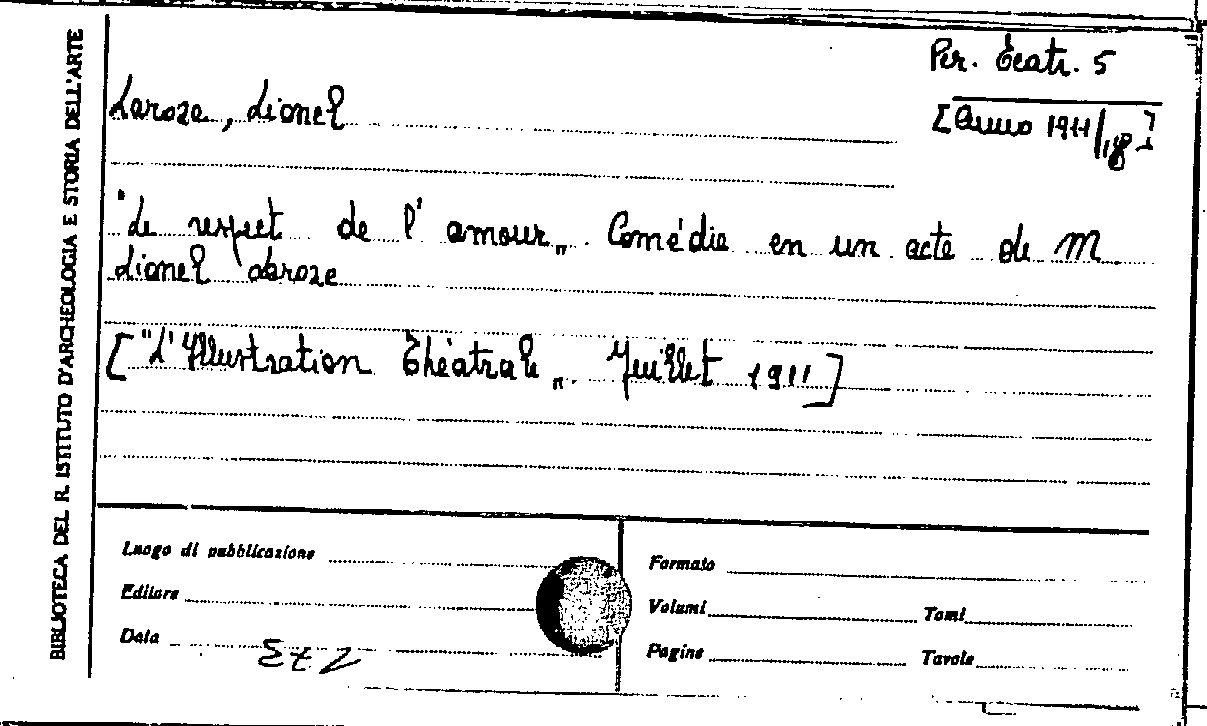 BIBLIOTECA DEL R. ISTITUTO D'ARCHEOLOGIA E STORIA DELL'ARTE
Per. Teatr. 5
Laroze, Lionel
[Anno 1911/18]
"Le respect de l'amour„ Comédie en un acte de M
Lionel Laroze
["L'Illustration Théatrale„ Juillet 1911]
Luogo di pubblicazione
Editore
Data
Formato
Volumi Tomi
Pagine Tavole